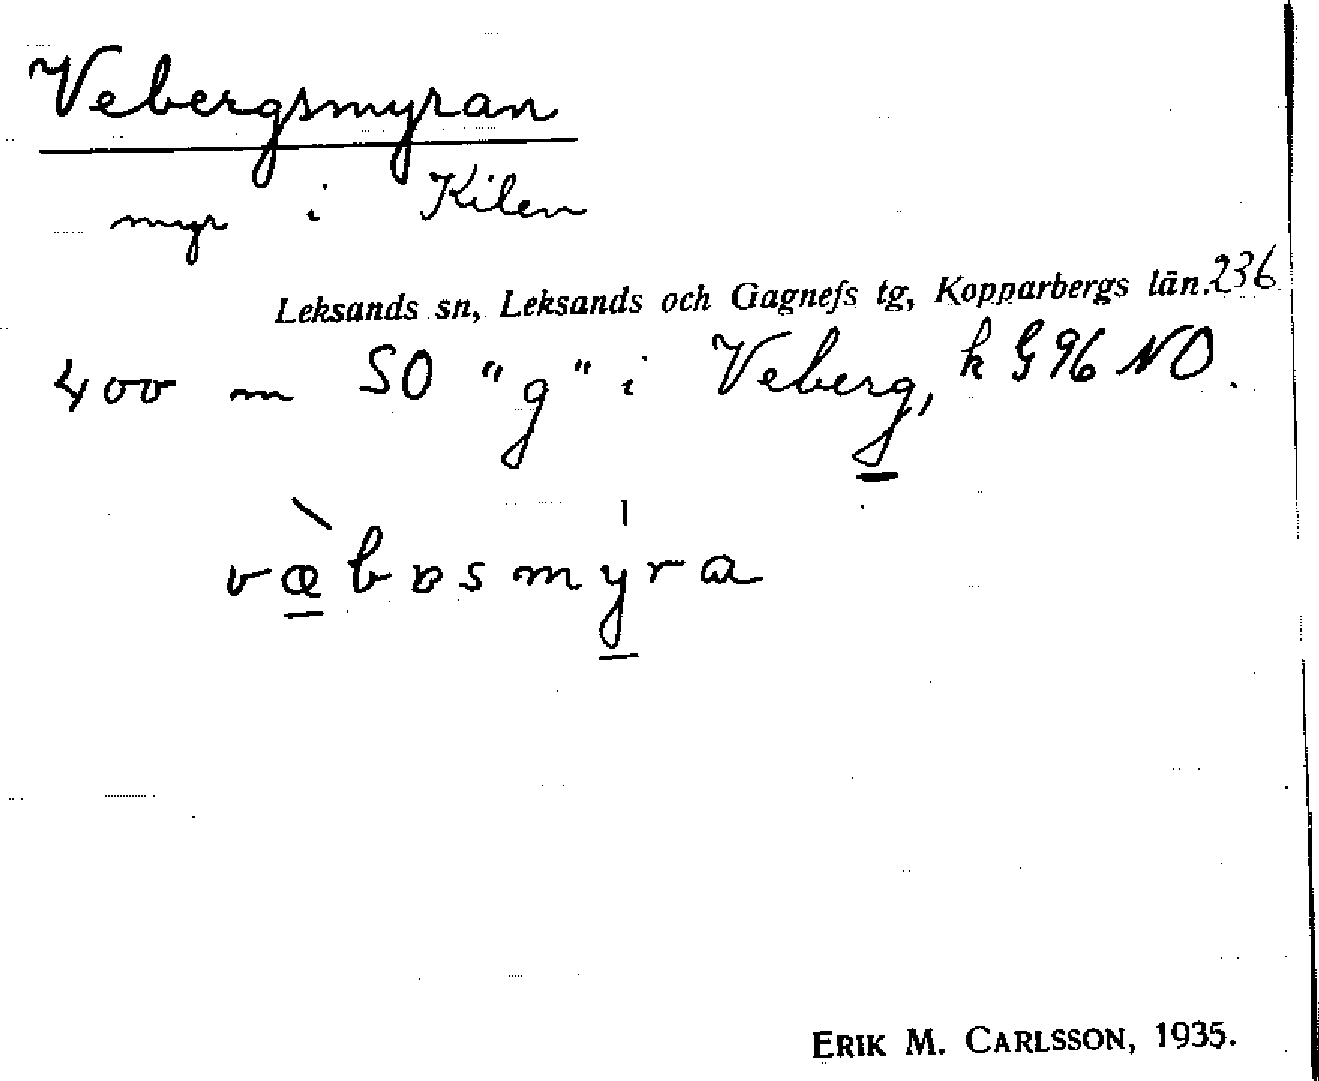 Vebergsmyran
myr i Kilen
Leksands sn, Leksands och Gagnefs tg, Kopparbergs län. 236
400 m SO "g" i Veberg, k G 96 NO.
v æ̀ b ɒ s m ý r a
ERIK M. CARLSSON, 1935.